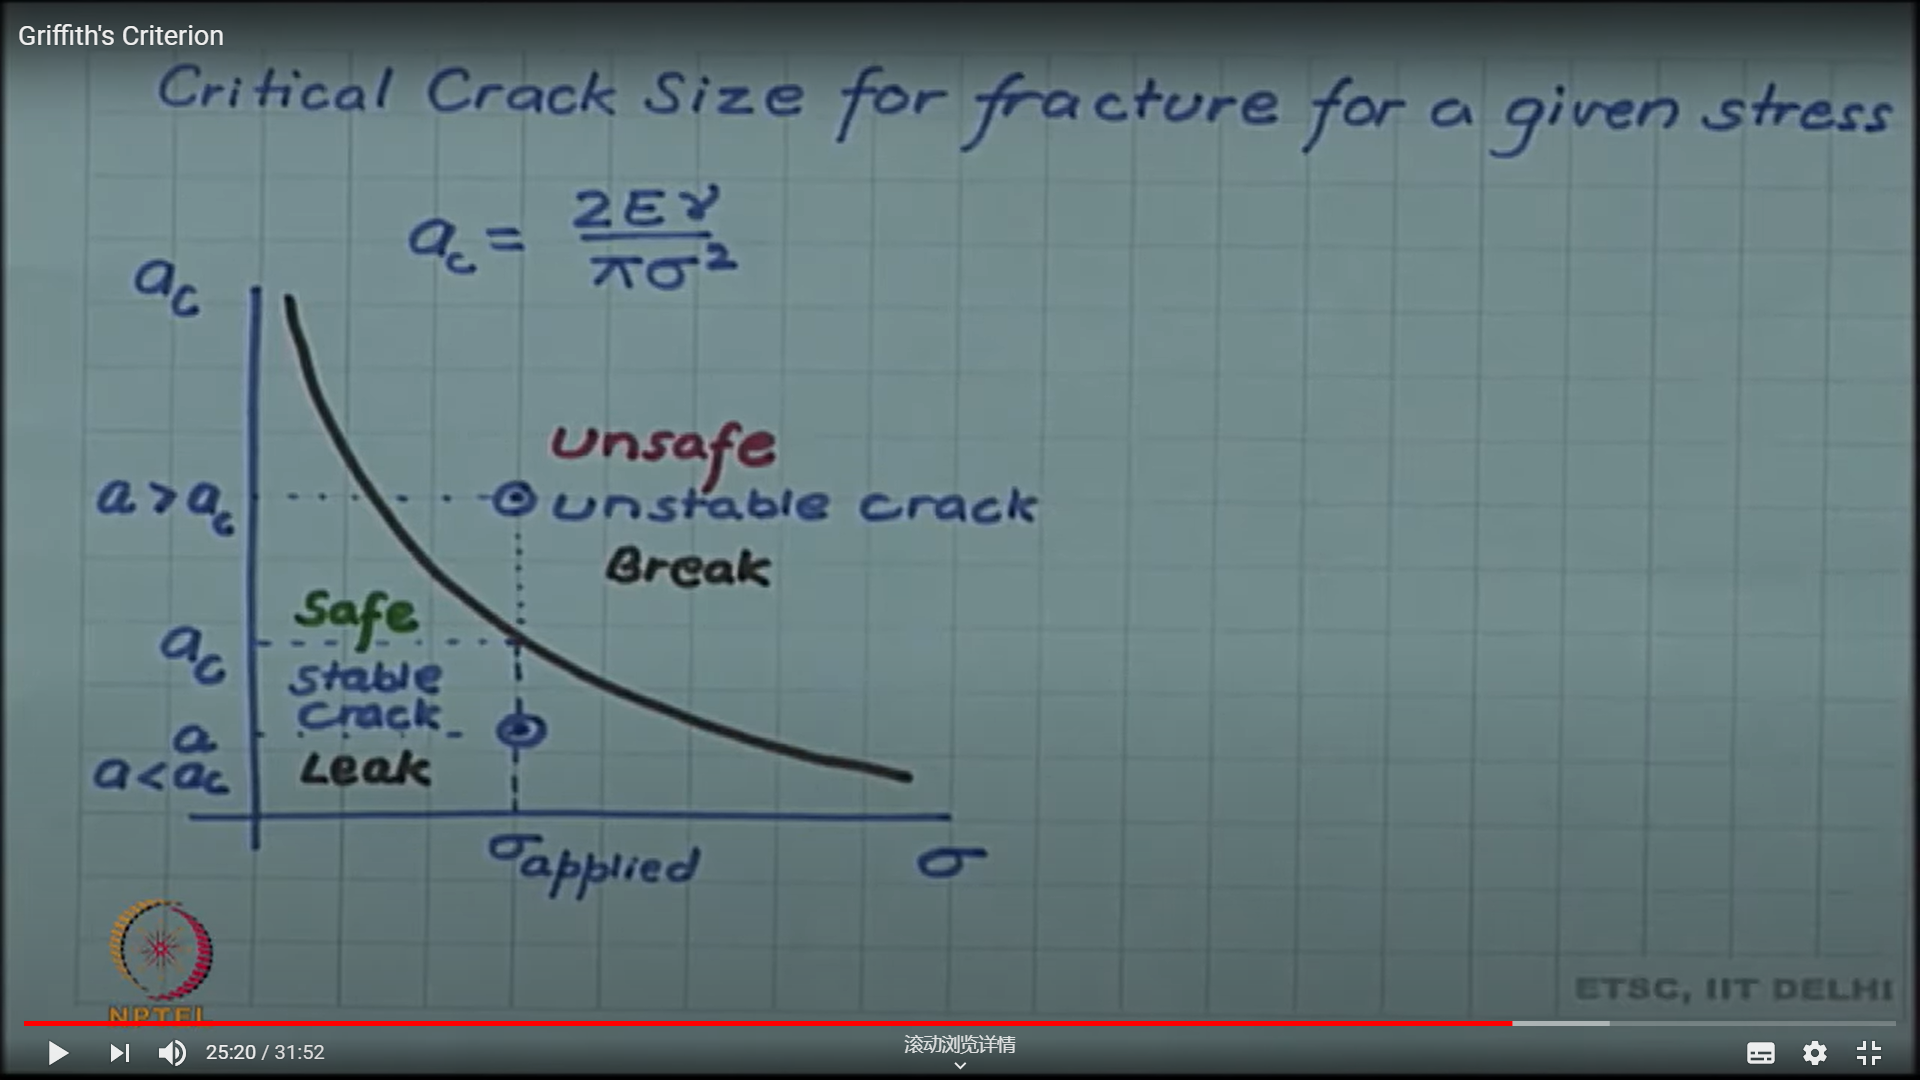 Griffith's Criterion
Critical Crack Size for fracture for a given stress
a_c = 2Eγ / πσ²
a_c
unsafe
a > a_c
unstable crack
Break
Safe
a_c
stable
crack
a
a < a_c
Leak
σ applied
σ
NPTEL
ETSC, IIT DELHI
25:20 / 31:52
滚动浏览详情